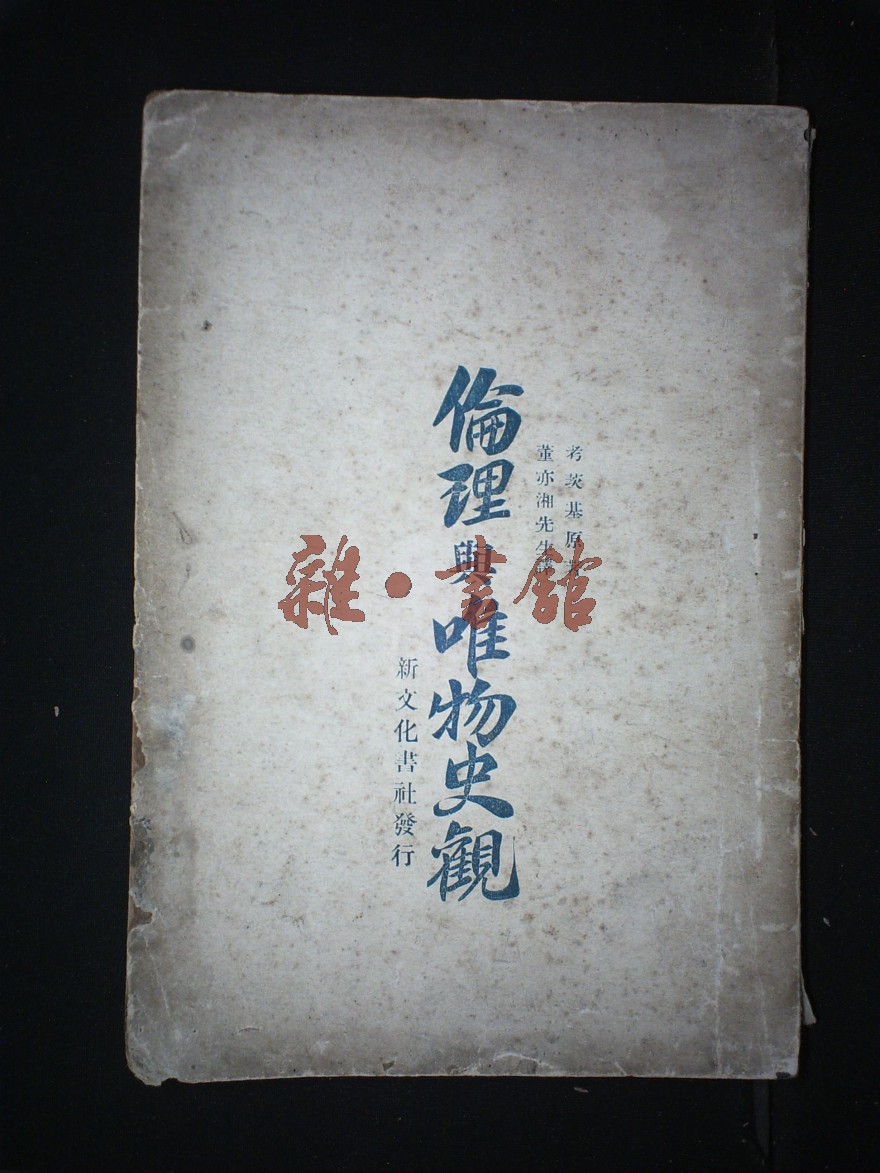 考茨基原著
董亦湘先生譯
倫理與唯物史觀
新文化書社發行
雜·書館